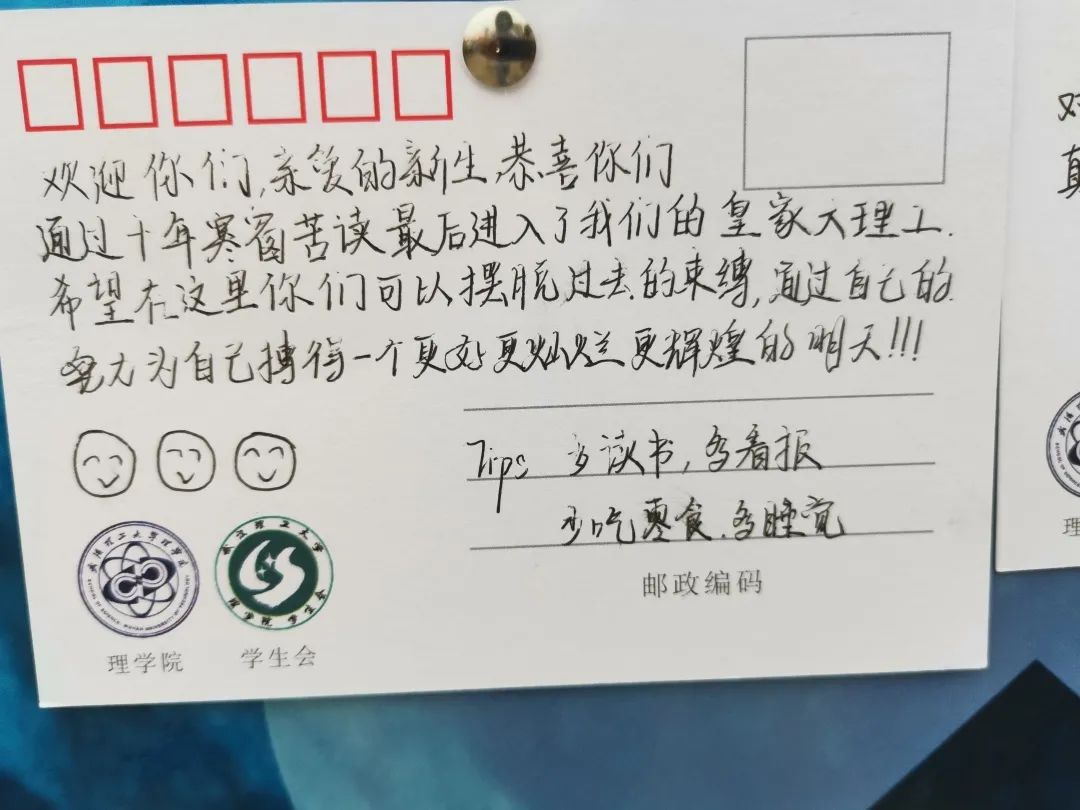 欢迎你们,亲爱的新生,恭喜你们
通过十年寒窗苦读最后进入了我们的皇家大理工.
希望在这里你们可以摆脱过去的束缚,通过自己的
努力为自己搏得一个更好更灿烂更辉煌的明天!!!
Tips 多读书,多看报
少吃零食.多睡觉
邮政编码
武汉理工大学理学院
武汉理工大学
理学院学生会
理学院
学生会
对
理